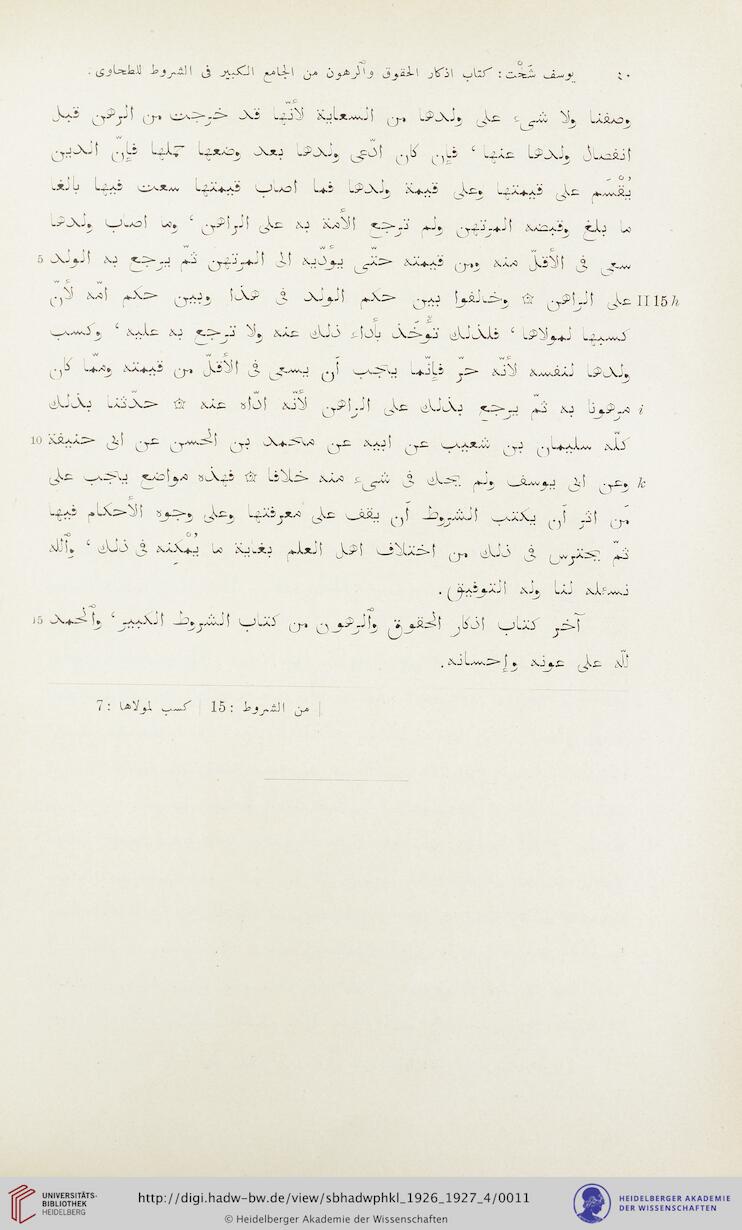 ٤٠ يوسف شَخْت: كتاب اذكار الحقوق وٱلرهون من الجامع الكبير فى الشروط للطحاوى.
وصفنا ولا شىء على ولدها من السعاية لأنّها قد خرجت من الرهن قبل
انفصال ولدها عنها ، فإن كان ادّعى ولدها بعد وضعها حملها فإنّ الدين
يُقْسَم على قيمتها وعلى قيمة ولدها فما اصاب قيمتها سعت فيها بالغا
ما بلغ وقبضه المرتهن ولم ترجع الأمة به على الراهن ، وما اصاب ولدها
سعى فى الأقلّ منه ومن قيمته حتّى يؤدّيه الى المرتهن ثمّ يرجع به الولد 5
II 15 h على الراهن ۞ وخالفوا بين حكم الولد فى هذا وبين حكم امّه لأنّ
كسبها لمولاها ، فلذلك تُؤْخَذ بأداء ذلك عنه ولا ترجع به عليه ، وكسب
ولدها لنفسه لأنّه حرّ فإنّما يجب أن يسعى فى الأقلّ من قيمته وممّا كان
i مرهونا به ثمّ يرجع بذلك على الراهن لأنّه ادّاه عنه ۞ حدّثنا بذلك
كلّه سليمان بن شعيب عن ابيه عن محمد بن الحسن عن ابى حنيفة 10
k وعن ابى يوسف ولم يحك فى شىء منه خلافا ۞ فهذه مواضع يجب على
مَن اثر أن يكتب الشروط أن يقف على معرفتها وعلى وجوه الأحكام فيها
ثمّ يحترس فى ذلك من اختلاف اهل العلم بغاية ما يُمْكِنه فى ذلك ، وٱلله
نسئله لنا وله التوفيق.
آخر كتاب اذكار الحقوق وٱلرهون من كتاب الشروط الكبير، وٱلحمد 15
للّه على عونه وإحسانه.
7: كسب لمولاها | 15: من الشروط |
UNIVERSITÄTS-
BIBLIOTHEK
HEIDELBERG
http://digi.hadw-bw.de/view/sbhadwphkl_1926_1927_4/0011
© Heidelberger Akademie der Wissenschaften
HEIDELBERGER AKADEMIE
DER WISSENSCHAFTEN